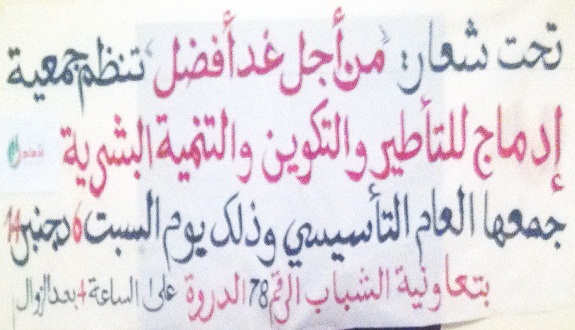 تحت شعار: "من أجل غد أفضل" تنظم جمعية
إدماج للتأطير والتكوين والتنمية البشرية
جمعها العام التأسيسي وذلك يوم السبت 6 دجنبر 14
بتعاونية الشباب الرقم 78 الدروة على الساعة 4 بعد الزوال